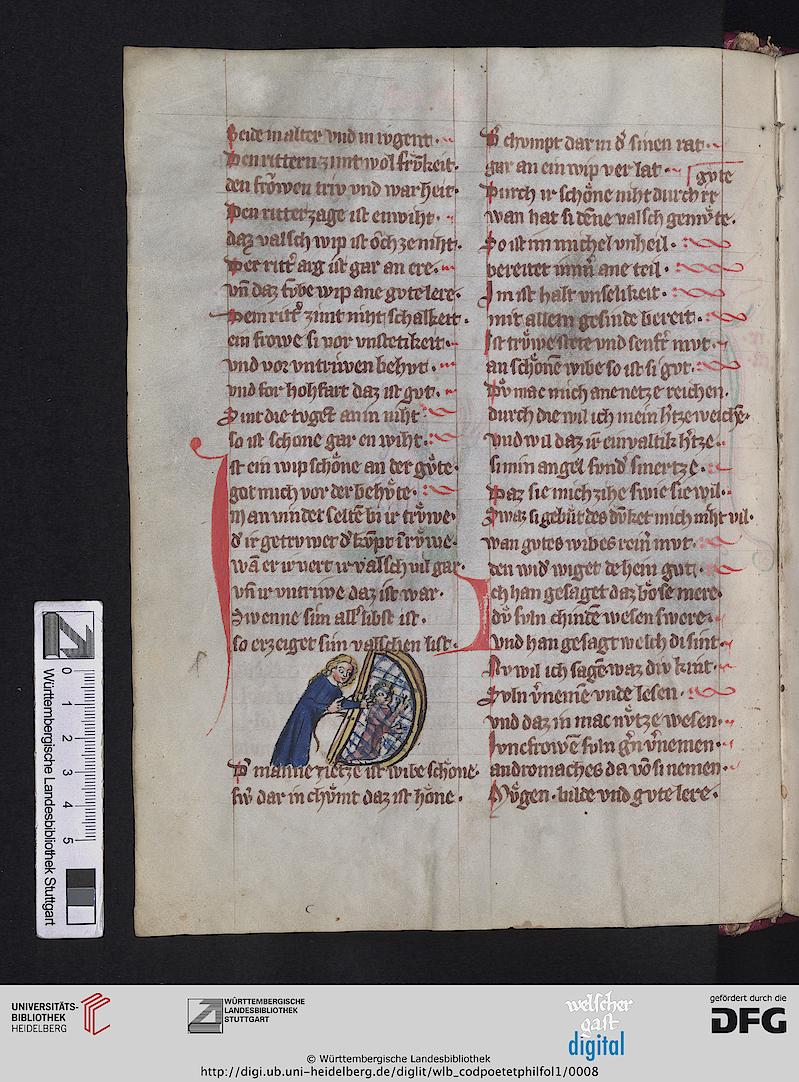 Beide in alter vnd in ivgent.
Den rittern zimt wol frvͤmkeit.
den frowen triv vnd warheit.
Den ritter zage ist enwiht.
daz valsch wip ist och ze niht.
Der ritt̉ arg ist gar an ere.
vn̄ daz tvͤbe wip ane gvte lere.
Dem ritt̉ zimt niht schalkeit.
ein frowe si vor vnstetikeit.
vnd vor vntriwen behvt.
vnd for hohfart daz ist gvt.
Sint die tvget an in niht
so ist schone gar en wiht.
Ist ein wip schoͤne an der gvͤte.
got mich vor der behvͤte.
Man vindet seltē bi ir trvͤwe.
wā er ir vert ir valsch vil gar.
vn̄ ir vntriwe daz ist war.
Swenne sim all̉ libst ist.
so erzeiget sim valschen list.
D̉ manne zietze ist wibe schoͤne.
sw̉ dar in chvͤmt daz ist hoͤne.
D̉ chvmpt dar in d̉ sinen rat
gar an ein wip ver lat
gvte
Dvrch ir schoͤne niht dvrch ir
wan hat si dēne valsch gemvͤte.
So ist im michel vnheil.
bereitet ane teil.
Im ist halt vnselikeit.
mit allem gesinde bereit.
Ist trvͤwe stete vnd senft̉ mvt.
an schoͤnem wibe so ist si gvt.
Dv mac mich ane netze reichen.
dvrch die wil ich mein h̉tze weichē.
vnd wil daz ir einvaltik h̉tze.
si min angel svnd̉ smertze.
Daz sie mich zihe swie sie wil.
Swaz si gebvͤt des dvͤket mich niht vil.
wan gvtes wibes rein̄ mvt.
den wid̉ wiget dehein gvt.
Ich han gesaget daz boͤse mere
dvͤ svln chindē wesen swere.
vnd han gesagt welch di sint.
Nv wil ich sagē waz div kint.
Svln v̉nemen vnde lesen.
vnd daz in mac nvͤtze wesen.
Ivncfrowē svln g̉n v̉nemen.
andromaches da vō si nemen.
Mvͤgen bilde vnd gvte lere.
0 1 2 3 4 5
Württembergische Landesbibliothek Stuttgart
UNIVERSITÄTS-
BIBLIOTHEK
HEIDELBERG
WÜRTTEMBERGISCHE
LANDESBIBLIOTHEK
STUTTGART
welscher
gast
digital
gefördert durch die
DFG
© Württembergische Landesbibliothek
http://digi.ub.uni-heidelberg.de/diglit/wlb_codpoetetphilfol1/0008